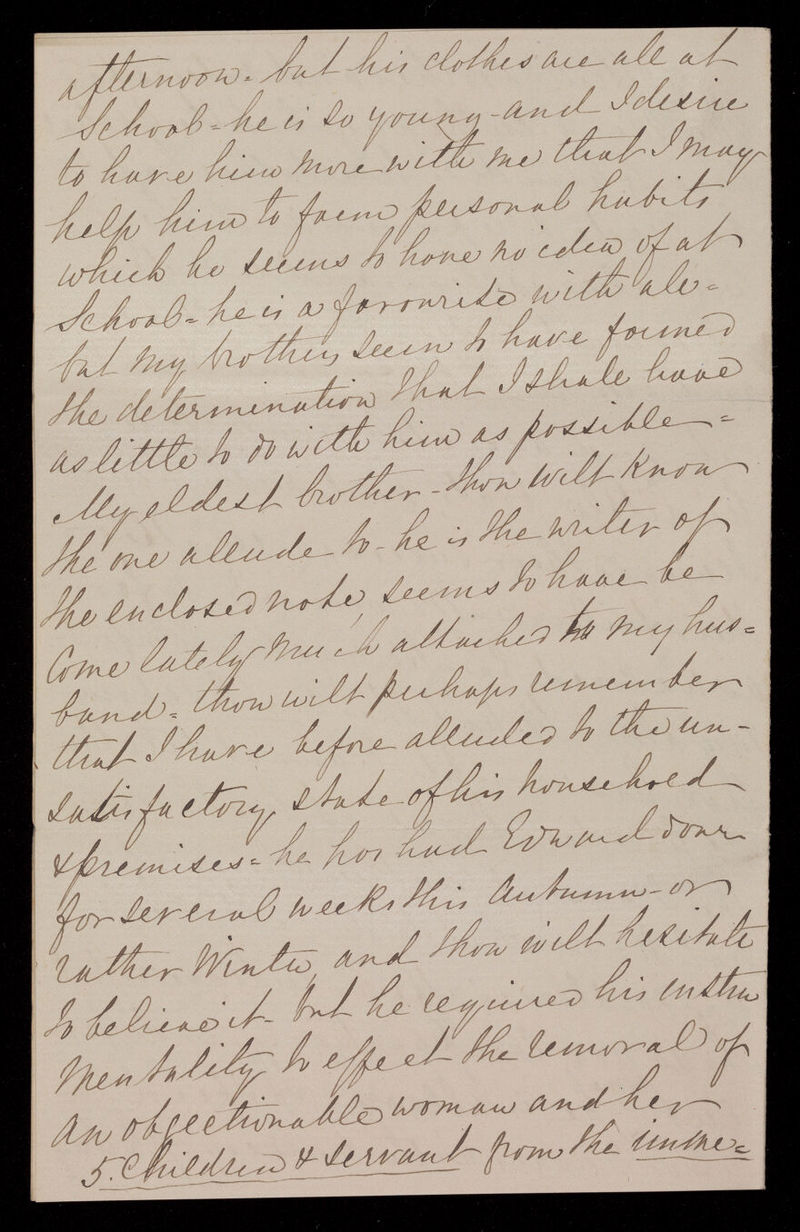 afternoon. but his clothes are all at
School = he is so young - and I desire
to have him more with me that I may
help him to form personal habits
which he seems to have no idea of at
School = he is a favourite with all =
but my brothers seem to have formed
the determination that I shall have
as little to do with him as possible =
My eldest brother - thou wilt know
the one allude to - he is the writer of
the enclosed note, seems to have be
come lately much attached to my hus=
band = thou wilt perhaps remember
that I have before alluded to the un-
satisfactory state of his household
& premises = he has had Edward down
for several weeks this Autumn - or
rather Winter, and thou wilt hesitate
to believe it - but he required his instru
mentality to effect the removal of
an objectionable woman and her
5. Children & servant from the imme=